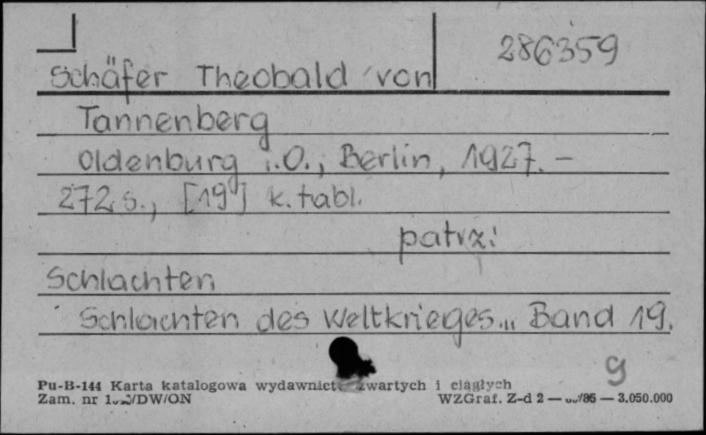 286359
Schäfer Theobald von
Tannenberg
Oldenburg i.O., Berlin, 1927. –
272 s., [19] k. tabl.
patrz:
Schlachten
Schlachten des Weltkrieges... Band 19.
g
Pu-B-144 Karta katalogowa wydawnict zwartych i ciągłych
Zam. nr /DW/ON WZGraf. Z-d 2 — /86 — 3.050.000